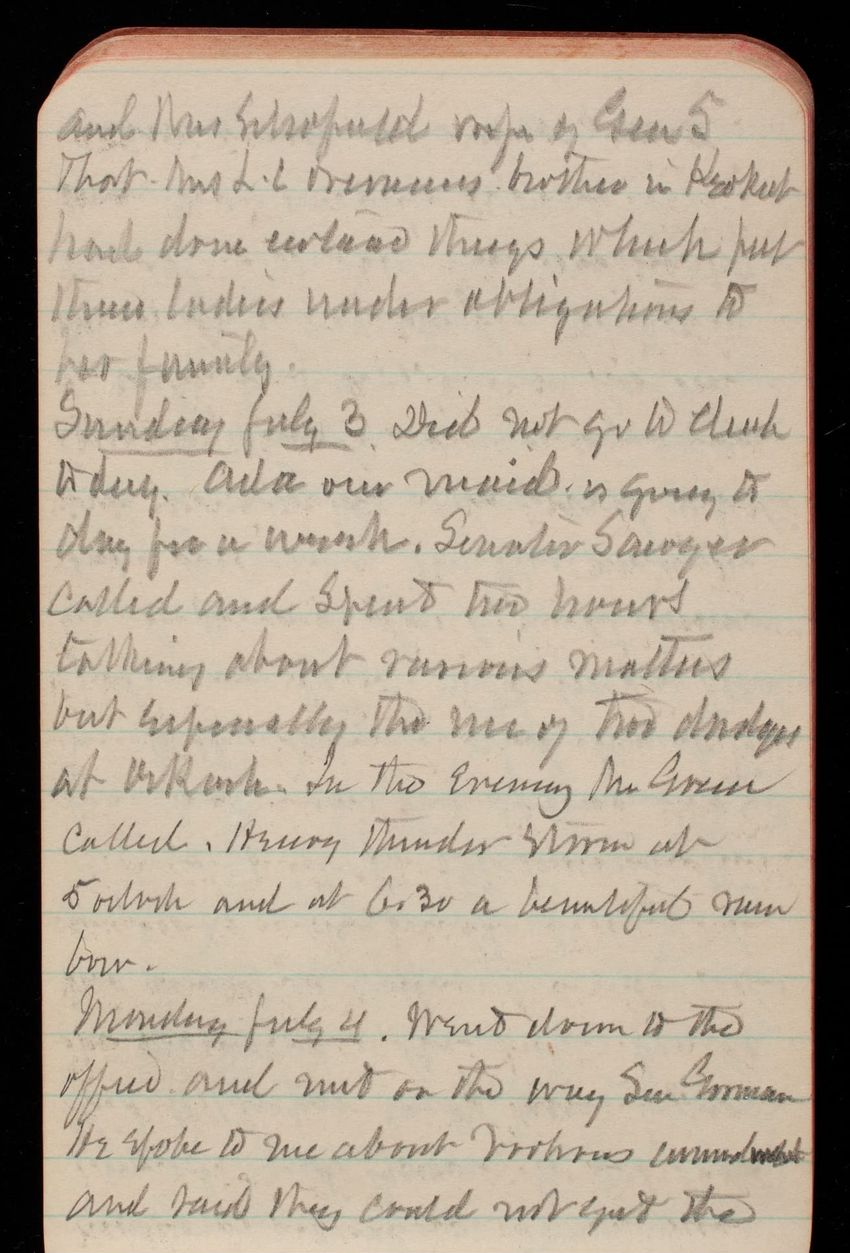 and Mrs Schofield wife of Gen S
that Mrs L. C brother in Keokuk
had done certain things which put
these ladies under obligations to
her family.
Sunday July 3 Did not go to church
to day. Ada our maid is going to
day for a week. Senator Sawyer
called and spent two hours
talking about various matters
but especially the use of two dredges
at Oshkosh. In the evening Mr Green
called. Heavy thunder storm at
5 oclock and at 6:30 a beautiful rain
bow.
Monday July 4. Went down to the
office and met on the way Sen Gorman
He spoke to me about amendment
and said they could not get the